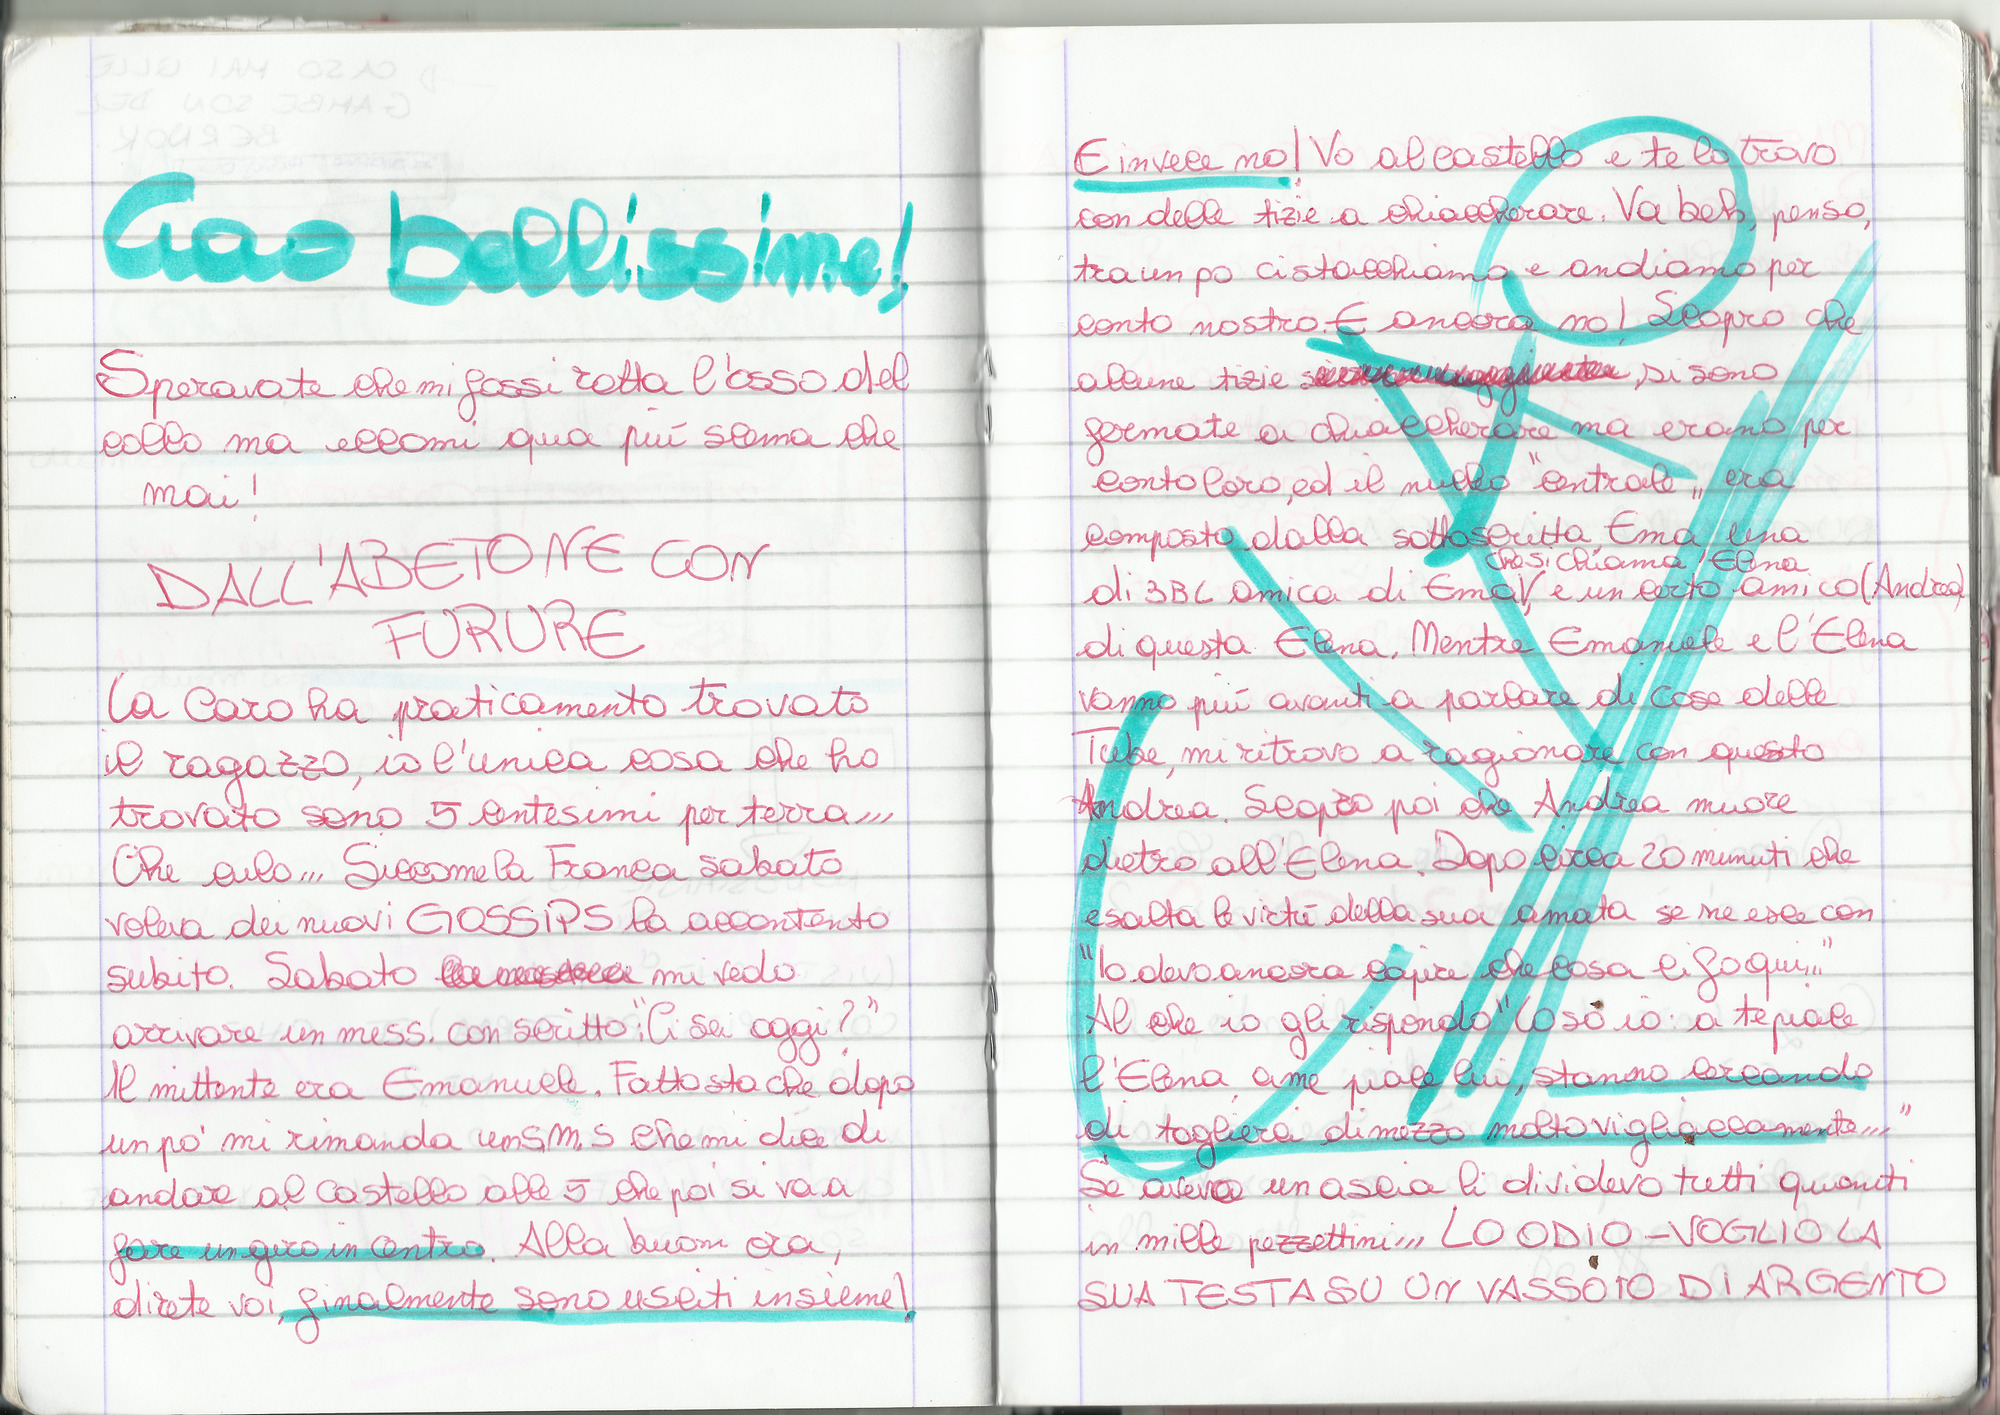 Ciao bellissime!
Speravate che mi fossi rotta l'osso del
collo ma eccomi qua più scema che
mai!
DALL'ABETONE CON
FURURE
La Caro ha praticamento trovato
il ragazzo, io l'unica cosa che ho
trovato sono 5 centesimi per terra...
Che culo... Siccome la Franca sabato
voleva dei nuovi GOSSIPS la accontento
subito. Sabato mi vedo
arrivare un mess. con scritto: "Ci sei oggi?"
Il mittente era Emanuele. Fatto sta che dopo
un po' mi rimanda un S.M.S che mi dice di
andare al castello alle 5 che poi si va a
fare un giro in centro. Alla buon ora,
direte voi, finalmente sono usciti insieme!
E invece no! Vo al castello e te lo trovo
con delle tizie a chiaccherare. Va beh, penso,
tra un po ci stacchiamo e andiamo per
conto nostro. E ancora no! Scopro che
alcune tizie si sono
fermate a chiaccherare ma erano per
conto loro, ed il nucleo "centrale" era
composto dalla sottoscritta Ema una
che si chiama Elena
di 3BL amica di Ema, e un certo amico (Andrea)
di questa Elena. Mentre Emanuele e l'Elena
vanno più avanti a parlare di cose delle
Tube, mi ritrovo a ragionare con questo
Andrea. Scopro poi che Andrea muore
dietro all'Elena. Dopo circa 20 minuti che
esalta le virtù della sua amata se ne esce con
"Io devo ancora capire che cosa ci fo qui..."
Al che io gli rispondo "Coso io: a te piace
l'Elena, a me piace lui, stanno cercando
di toglierci di mezzo molto vigliaccamente..."
Se avevo un ascia li dividevo tutti quanti
in mille pezzettini... LO ODIO - VOGLIO LA
SUA TESTA SU UN VASSOIO DI ARGENTO